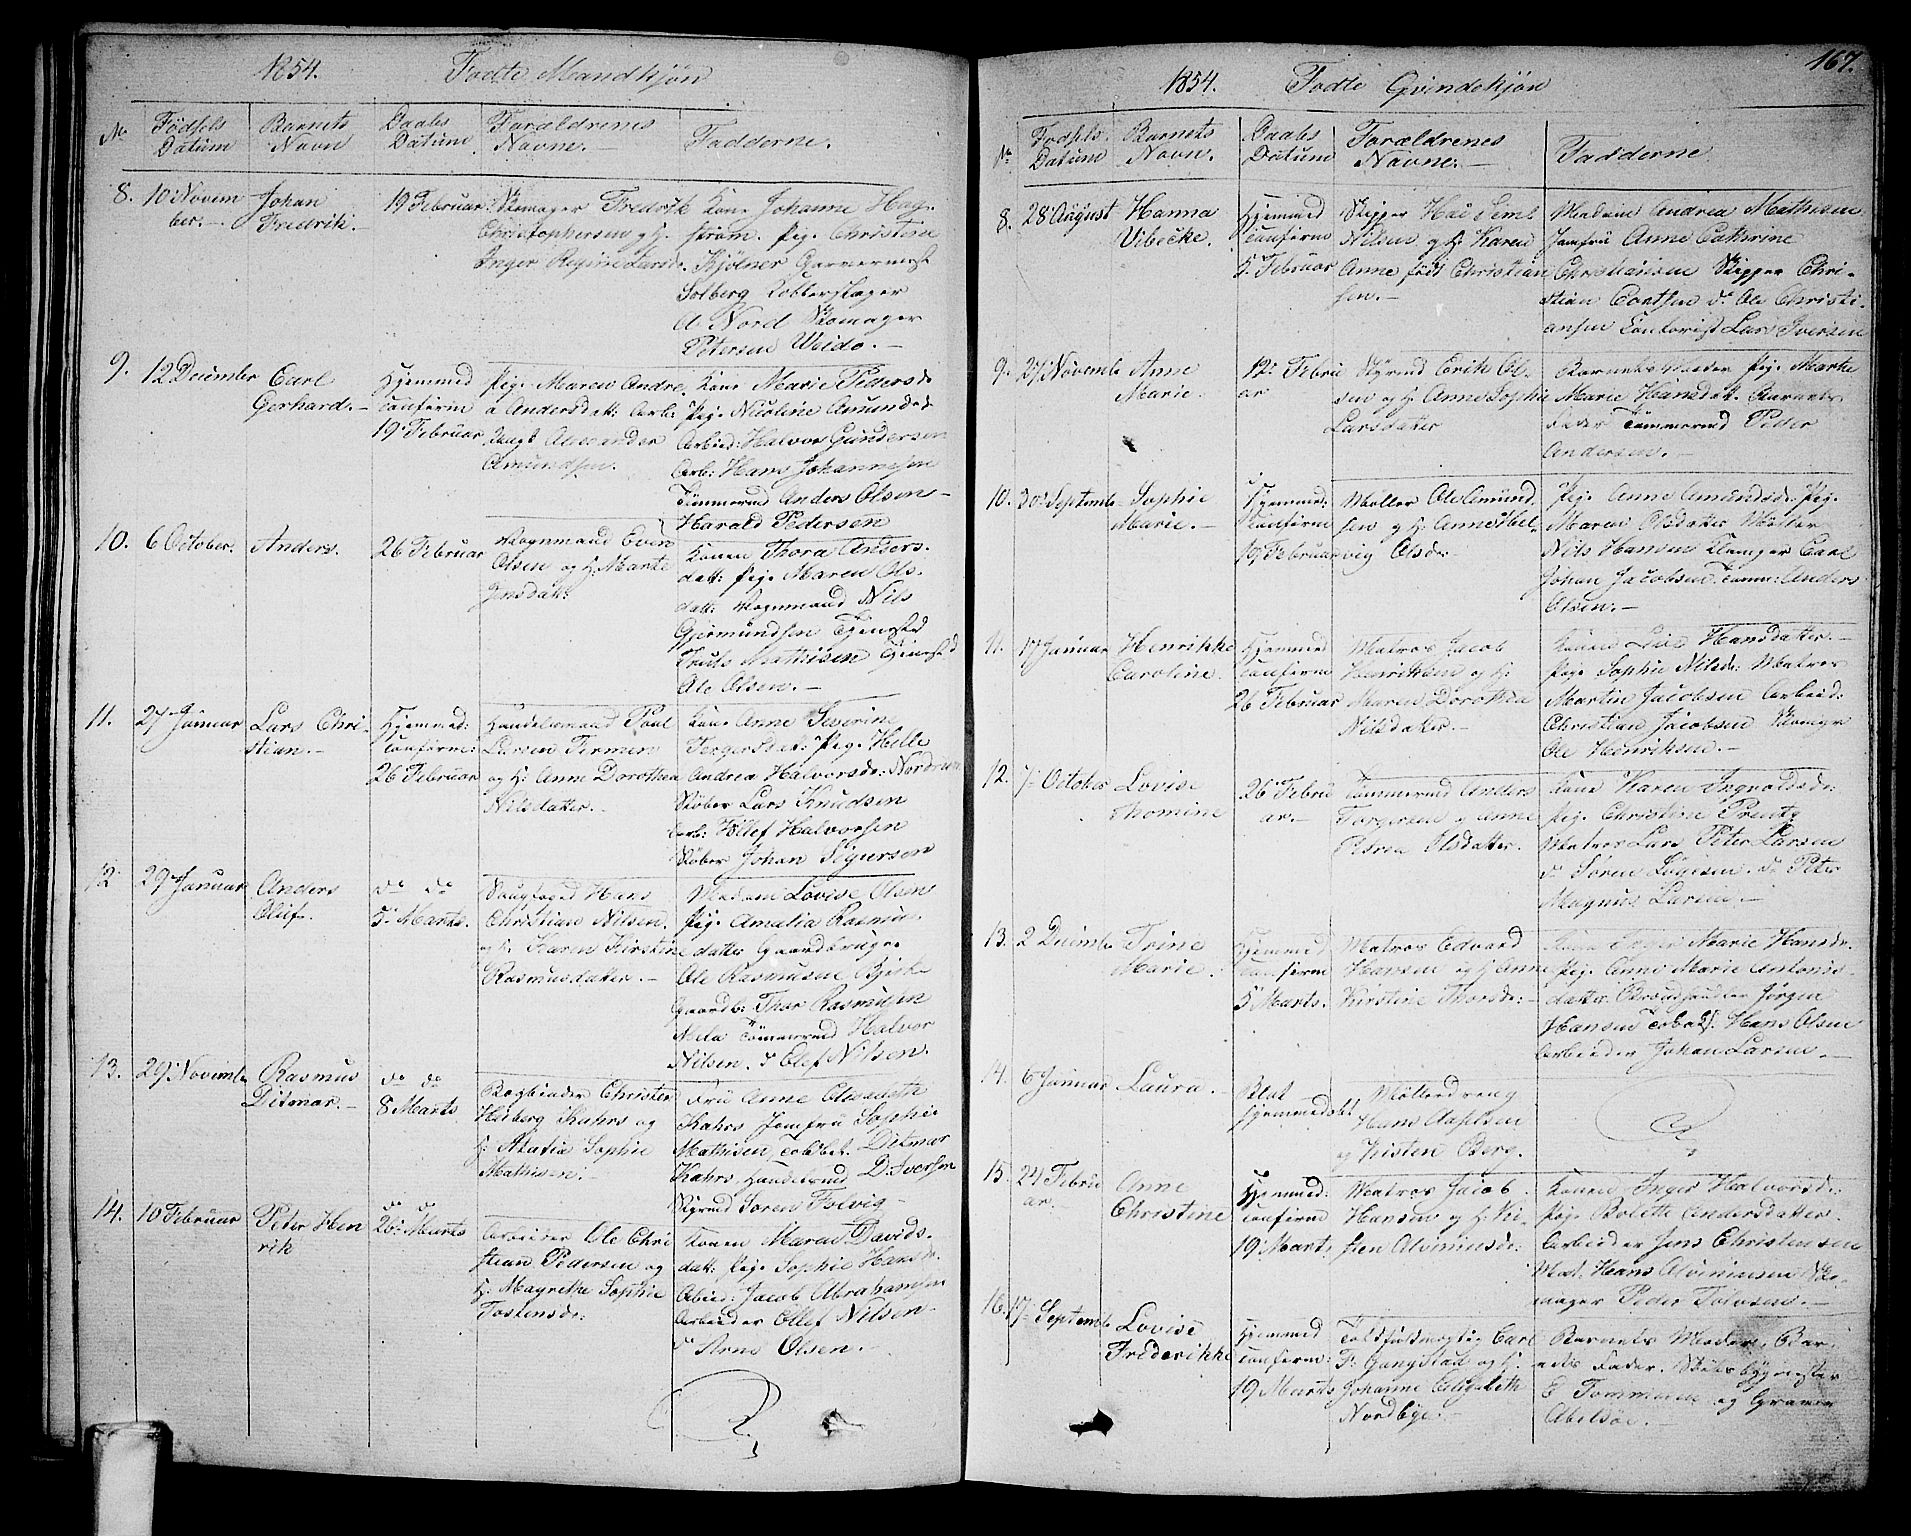 1854. Fødte Mandkjøn
No
Fødsels Datum
Barnets Navn
Daabs Datum
Forældrenes Navne.
Fadderne.
8. 10 Novem
ber.
Johan
Fredrik.
19 Februar
Skomager Fredrik
Christophersen og H.
Inger Regine Larsd.
Kone Johanne Hag-
strøm. Pig. Christine
Kjølner Garvermest
Solberg Kobberslager
A. Nord Skomager
Petersen Weido.
9. 12 December
Carl
Gerhard.
Hjemmed
Confirm
19 Februar
Pige Maren Andre
a Andersdatt: Arb:
Knegt Alexander
Amundsen.
Kone Marie Pedersd
Pig. Nicoline Amundsd
Arbeid: Halvor Gundersen
Arb: Hans Johannesen
Tømmermd Anders Olsen
Harald Pedersen
10. 6 October.
Anders.
26 Februar
Vognmand Even
Olsen og H: Marthe
Jensdatt:
Konen Thora Anders-
datt: Pig. Maren Ols-
datt: Vognmand Nils
Gjermundsen Tjenested
Knuts Mathisen Tjenested
Ole Olsen.
11. 27 Januar
Lars Chri-
stian.
Hjemmed:
Confirm:
26 Februar
Handelsmand Poul
Larsen Fermen
og H: Anne Dorothea
Nilsdatter.
Kone Anne Severine
Tergersdat: Pig. Helle
Andrea Halvorsd: Nordrum
Skober Lars Knudsen
Arb: Ellef Halvorsen
Skober Johan Sigursen
12 29 Januar
Anders
Oluf.
do do
5 Marts.
Hans
Christian Nilsen.
og H. Karen Kirstine
Rasmusdatter.
Madam Lovise Olsen
Pig. Amalia Rasmus-
datter Gaardbruger
Ole Rasmusen
Gaardb: Thor Rasmusen
Tømmermd Halvor
Nilsen. do Olef Nilsen.
13. 29 Novembr
Rasmus
Ditmar.
do do
8 Marts
Bogbinder Christen
Heiberg Kahrs og
H: Maria Sophie
Mathisen:
Fru Anne Elisabeth
Kahrs Jomfru Sophie
Mathisen, Toldbet. Ditmar
Kahrs, Handelsmd D. Iversen
Styrmd Soren Folvig
14. 10 Februar
Peter Hen
rik
do do
26 Marts
Arbeider Ole Chri
stian Pedersen og
H. Magrethe Sophie
Tostensd:
Konen Maren Davids-
datt: Pig. Sophie Hansd.
Abeid: Jacob Abrahamsen
Arbeider Ellef Nilsen
do Arne Olsen.
167.
1854. Fødte Qvindekjøn
No
Fødsels Datum
Barnets Navn.
Daabs Datum
Forældrenes Navne.
Fadderne
8. 28 August
Hanna
Vibecke.
Hjemmed
Confirm
5 Februar
Skipper
Nilsen og H: Karen
Anne født Christian
sen.
Madam Andrea Mathisen
Jomfru Anne Cathrine
Christiansen Skipper Chri-
stian do Ole Christi-
ansen Contorist Lars Iversen
9. 27 Novemb
Anne
Marie.
12 Febru
ar
Styrmd Erik Ol-
sen og H. Anne Sophie
Larsdatter
Barnets Moder Pig. Marthe
Marie Hansdat. Barnets
Fader Tømmermd Peder
Andersen.
10. 30 Septemb
Sophie
Marie.
Hjemmed:
Confirm
19 Februar
Møller Ole Amund
sen og H: Anne Hel-
vig Olsd:
Pig. Anne Amundsd. Pig.
Maren Olsdatter Møller
Nils Hansen Carl
Johan Jacobsen Tømm: Anders
Olsen.
11. 17 Januar
Henrikke
Caroline.
Hjemmed
Confirm
26 Februar
Matros Jacob
Henriksen og H:
Maren Dorothea
Nilsdatter.
Konen Lise Hansdatter.
Pig. Sophie Nilsd: Matros
Martin Jacobsen Arbeid:
Christian Jacobsen Skomager
Ole Henriksen.
12. 7 October
Lovise
Thomine
26 Febru
ar.
Tømmermd Anders
Torgersen og Anne
Petrea Olsdatter.
Kone Karen Ingvoldsd:
Pig. Christine Prentz
Matros Lars Peter Larsen
do Søren Løgisen. do Peter
Magnus Larsen.
13. 2 Decembr
Trine
Marie.
Hjemmed
Confirm
5 Marts.
Matros Edvard
Hansen og H Anne
Kirstine Thorsd:
Kone Inger Marie Hansd.
Pig. Anne Marie Antonis-
datter. Jørgen
Hansen Hans Olsen
Arbeider Johan Larsen.
14. 6 Januar
Laura.
Blot
hjemmedøbt
Møllerdreng
Hans
og Kisten Berg.
15. 24 Febru
ar.
Anne
Christine
Hjemmed:
Confirm
19 Marts
Matros Jacob
Hansen og H: Kir-
sten Alvimusd:
Konen Inger Halvorsd:
Pig. Bolette Andersdatter.
Arbeider Jens Christensen
Mad. Hans Alvimusen Sko-
mager Peder
16. 17 Septemb
Lovise
Frederikke
Hjemmed
Confirm:
19 Marts
Carl
F: Gangstad og H.
Johanne Elisabeth
Nordbye.
Barnets Moder, Bar
nets Fader. Skibsbygmester
E Tommesen og Graver
Abelsøe.